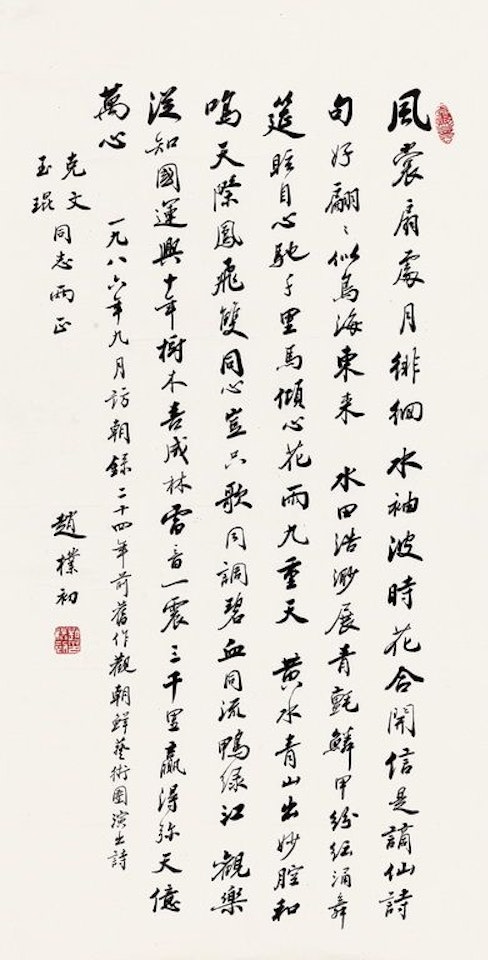 風裳扇處月徘徊水袖波時花合開信是謫仙詩
句好翩〻似鳥海東来 水田浩渺展青氈鱗甲紛紜涌舞
筵眩目心馳千里馬傾心花雨九重天 黄水青山出妙腔和
鳴天際鳳飛雙同心豈只歌同調碧血同流鴨绿江 觀樂
從知國運興十年樹木喜成林雷音一震三千里贏得弥天億
萬心
一九八六年九月訪朝錄二十四年前舊作觀朝鮮藝術團演出詩
克文
玉琨
同志兩正
趙樸初